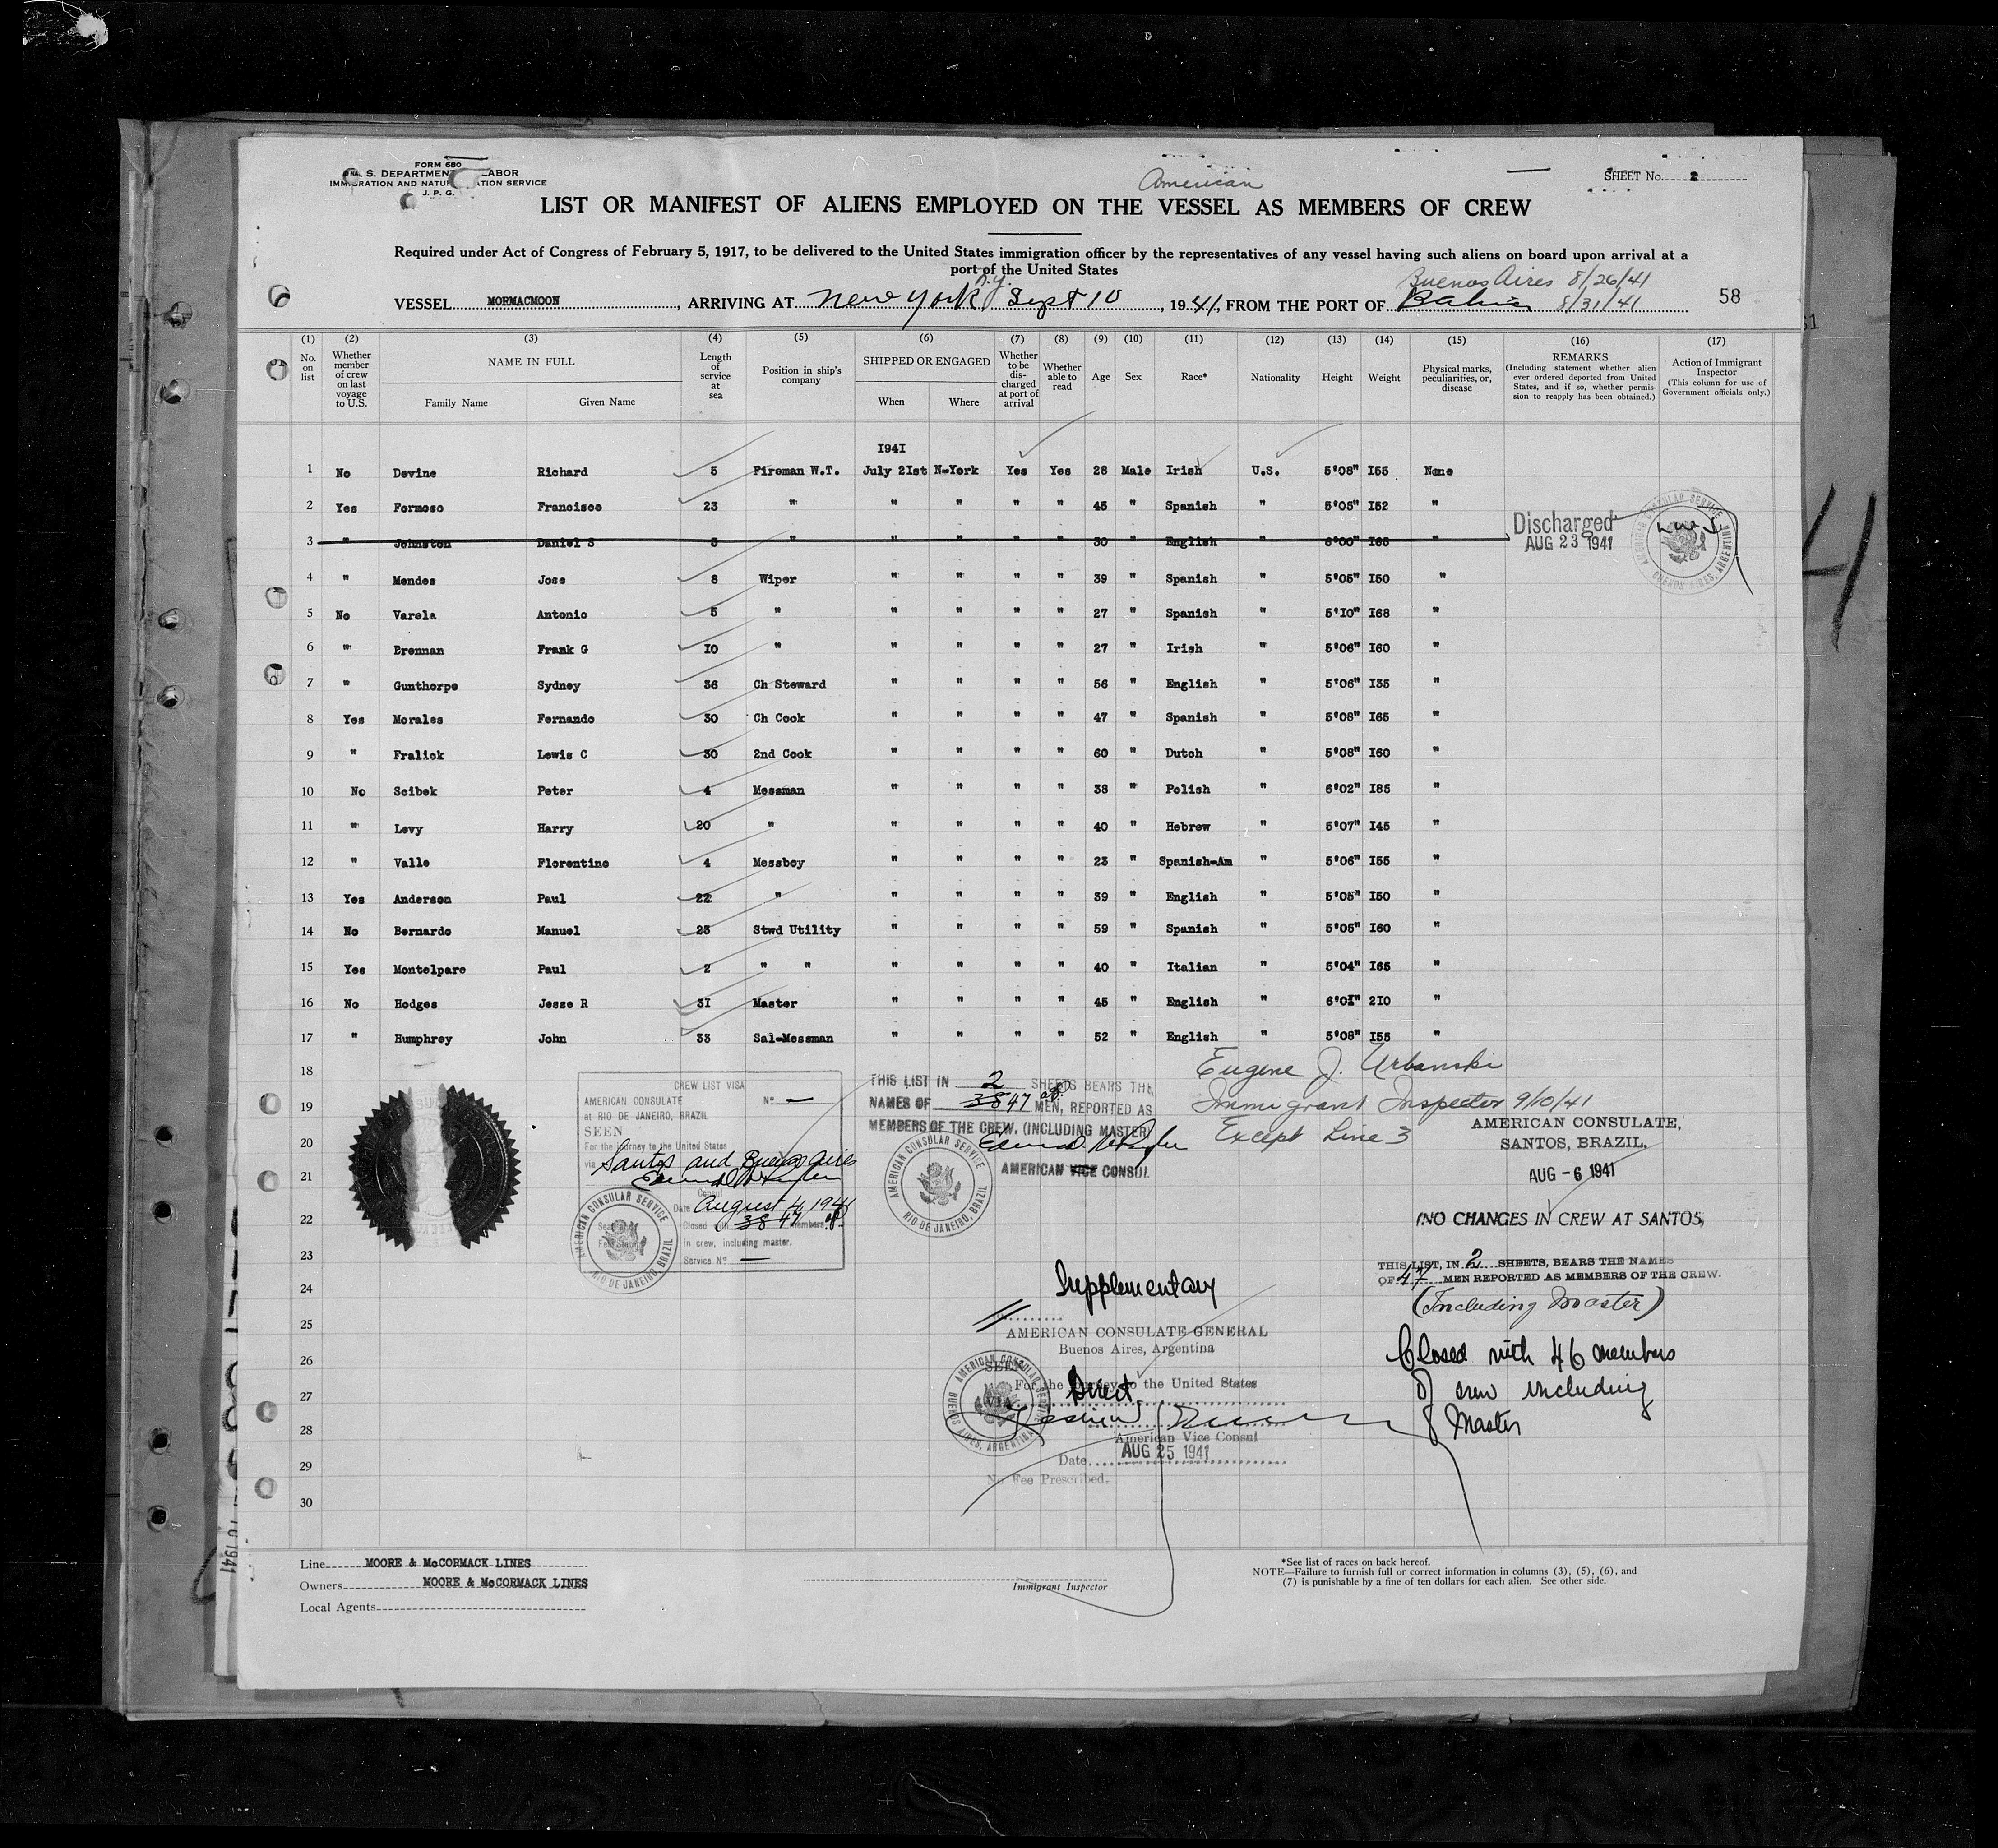 FORM 680
U. S. DEPARTMENT LABOR
IMMIGRATION AND NATURALIZATION SERVICE
J. P. G.
American
SHEET No. 2
LIST OR MANIFEST OF ALIENS EMPLOYED ON THE VESSEL AS MEMBERS OF CREW
Required under Act of Congress of February 5, 1917, to be delivered to the United States immigration officer by the representatives of any vessel having such aliens on board upon arrival at a
port of the United States
Buenos Aires 8/26/41
VESSEL MORMACMOON, ARRIVING AT New York N.Y. Sept 10, 1941, FROM THE PORT OF Bahia 8/31/41
58
(1) (2) (3) (4) (5) (6) (7) (8) (9) (10) (11) (12) (13) (14) (15) (16) (17)
No. on list
Whether member of crew on last voyage to U.S.
NAME IN FULL
Family Name
Given Name
Length of service at sea
Position in ship's company
SHIPPED OR ENGAGED
When
Where
Whether to be discharged at port of arrival
Whether able to read
Age
Sex
Race*
Nationality
Height
Weight
Physical marks, peculiarities, or, disease
REMARKS
(Including statement whether alien ever ordered deported from United States, and if so, whether permission to reapply has been obtained.)
Action of Immigrant Inspector
(This column for use of Government officials only.)
1941
1 No Devine Richard 5 Fireman W.T. July 21st N-York Yes Yes 28 Male Irish U.S. 5'08" 155 None
2 Yes Formoso Francisco 23 " " " " " 45 " Spanish " 5'05" 152 "
3 " Johnston Daniel S 5 " " " " " 30 " English " 6'00" 165 "
Discharged
AUG 23 1941
AMERICAN CONSULAR SERVICE
BUENOS AIRES, ARGENTINA
4 " Mendes Jose 8 Wiper " " " " 39 " Spanish " 5'05" 150 "
5 No Varela Antonio 5 " " " " " 27 " Spanish " 5'10" 168 "
6 " Brennan Frank G 10 " " " " " 27 " Irish " 5'06" 160 "
7 " Gunthorpe Sydney 36 Ch Steward " " " " 56 " English " 5'06" 135 "
8 Yes Morales Fernando 30 Ch Cook " " " " 47 " Spanish " 5'08" 165 "
9 " Fralick Lewis C 30 2nd Cook " " " " 60 " Dutch " 5'08" 160 "
10 No Scibek Peter 4 Messman " " " " 38 " Polish " 6'02" 185 "
11 " Levy Harry 20 " " " " " 40 " Hebrew " 5'07" 145 "
12 " Valle Florentino 4 Messboy " " " " 23 " Spanish-Am " 5'06" 155 "
13 Yes Anderson Paul 22 " " " " " 39 " English " 5'05" 150 "
14 No Bernardo Manuel 23 Stwd Utility " " " " 59 " Spanish " 5'05" 160 "
15 Yes Montelpare Paul 2 " " " " " " 40 " Italian " 5'04" 165 "
16 No Hodges Jesse R 31 Master " " " " 45 " English " 6'01" 210 "
17 " Humphrey John 33 Sal-Messman " " " " 52 " English " 5'08" 155 "
18
19
20
21
22
23
24
25
26
27
28
29
30
CREW LIST VISA
AMERICAN CONSULATE No —
at RIO DE JANEIRO, BRAZIL
SEEN
For the journey to the United States
via Santos and Buenos Aires
Consul
Date August 4, 1941
Closed with 38 47 members
in crew, including master.
Service No —
AMERICAN CONSULAR SERVICE
RIO DE JANEIRO, BRAZIL
THIS LIST IN 2 SHEETS BEARS THE
NAMES OF 38 47 MEN, REPORTED AS
MEMBERS OF THE CREW. (INCLUDING MASTER)
AMERICAN VICE CONSUL
AMERICAN CONSULAR SERVICE
RIO DE JANEIRO, BRAZIL
Eugene J. Urbanski
Immigrant Inspector 9/10/41
Except Line 3
AMERICAN CONSULATE,
SANTOS, BRAZIL.
AUG -6 1941
(NO CHANGES IN CREW AT SANTOS)
THIS LIST, IN 2 SHEETS, BEARS THE NAMES
OF 47 MEN REPORTED AS MEMBERS OF THE CREW.
(Including Master)
Closed with 46 members
of crew including
Master
Supplementary
AMERICAN CONSULATE GENERAL
Buenos Aires, Argentina
SEEN
For the journey to the United States
VIA Direct
American Vice Consul
Date AUG 25 1941
No Fee Prescribed.
AMERICAN CONSULAR SERVICE
BUENOS AIRES, ARGENTINA
Line MOORE & McCORMACK LINES
Owners MOORE & McCORMACK LINES
Local Agents
Immigrant Inspector
*See list of races on back hereof.
NOTE—Failure to furnish full or correct information in columns (3), (5), (6), and
(7) is punishable by a fine of ten dollars for each alien. See other side.